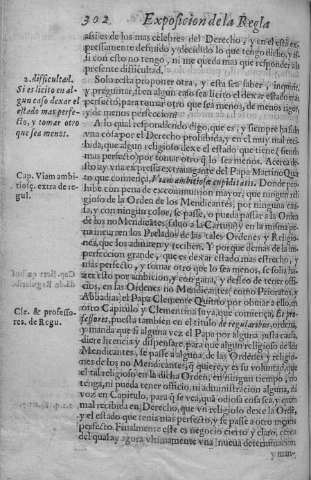 302 Exposicion de la Regla
assi es de los mas celebres del Derecho, y en el està ex-
pressamente definido y decidido lo que tengo dicho, y assi
con esto no tengo, ni me queda mas que responder à la
presente difficultad.
2. difficultad.
Si es licito en al-
gun caso dexar el
estado mas perfe-
cto, y tomar otro
que sea menos.
Solo resta proponer otra, y esta es à saber, inquirir,
y preguntar, si en algun caso sea licito el dexar estado mas
perfecto, para tomar otro que sea menos, de menos rigor,
y de menos perfeccion?
A lo qual respondiendo digo, que es, y siempre ha sido
vna cosa por el Derecho prohibida, y en el muy mal reci-
bida, que algun religioso dexe el estado que tiene (siendo
mas perfecto) por tomar otro que lo sea menos. Acerca des-
Cap. Viam ambi-
tiosę. extra de re-
gul.
to ay vna expressa extrauagante del Papa Martino Quin-
to que comiença, Viam ambitiosæ cupiditatis. Donde pro-
hibe con pena de excommunion mayor, que ningun reli-
gioso de la Orden de los Mendicantes, por ninguna cau-
sa, y con ningun color, se passe, o pueda passar à la Orden
de los no Mendicantes (saluo à la Cartuxa) y en la misma pe-
na incurren los Prelados de las tales Ordenes y Religio-
nes, que los admiten y reciben. Y porque demas de la im-
perfeccion grande, que es dexar estado mas estrecho, y
mas perfecto, y tomar otro que lo sea menos, se solia ha-
zer esto por ambicion, y con gana, y desseo de tener offi-
cios, en las Ordenes no Mendicantes, como Prioratos, y
Abbadias: el Papa Clemente Quinto por obuiar a ello, en
Cle. & professo-
res. de Regu.
otro Capitulo y Clementina suya, que comiença, Et pro-
fessores, puesta tambien en el titulo de regularibus, ordena,
y manda que si alguna vez el Papa por alguna justa causa,
diere licencia, y dispensare, para que algun religioso de los
Mendicantes, se passe a alguna de las Ordenes y religio-
nes de los no Mendicantes, quiere, y es su voluntad, que
el tal religioso en la dicha Orden, en ningun tiempo, no
tenga, ni pueda tener officio, ni administracion alguna, ni
voz en Capitulo, para que se vea, quã odiosa cosa sea, y quan
mal recibida en Derecho, que vn religioso dexe la Orden,
y el estado que tenia mas perfecto, y se passe a otro menos
perfecto. Finalmente este es negocio cierto y claro, cerca
del qual ay agora vltimamente vna nueua determinacion
y man-